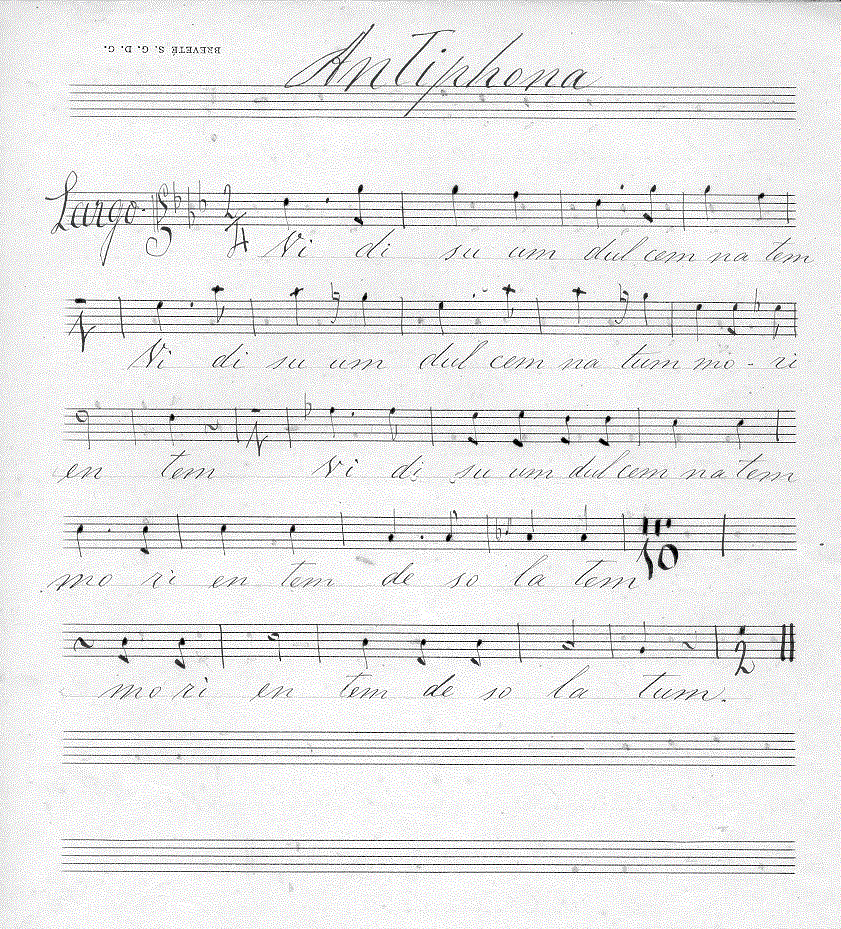 BREVETÉ S. G. D. G.
Antiphona
Largo. 2/4
Vi di su um dul cem na tem
1
Vi di su um dul cem na tum mo - ri
1
en tem Vi di su um dul cem na tem
mo ri en tem de so la tem
10
mo ri en tem de so la tum.
2